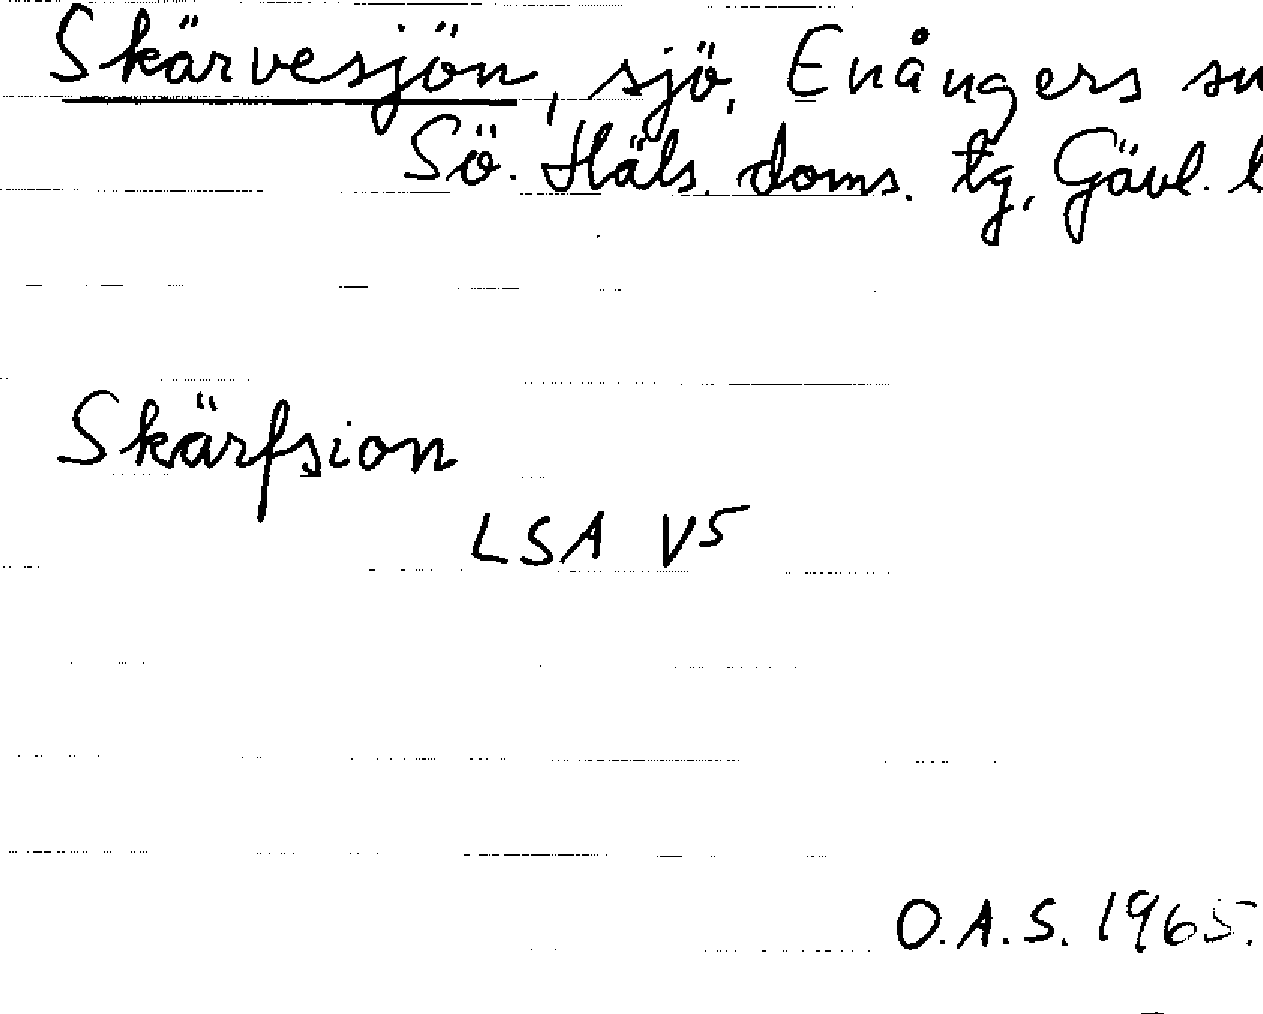 Skärvesjön, sjö, Enångers sn
Sö. Häls. doms. tg, Gävl. l
Skärfsion
LSA V5
O.A.S. 1965.